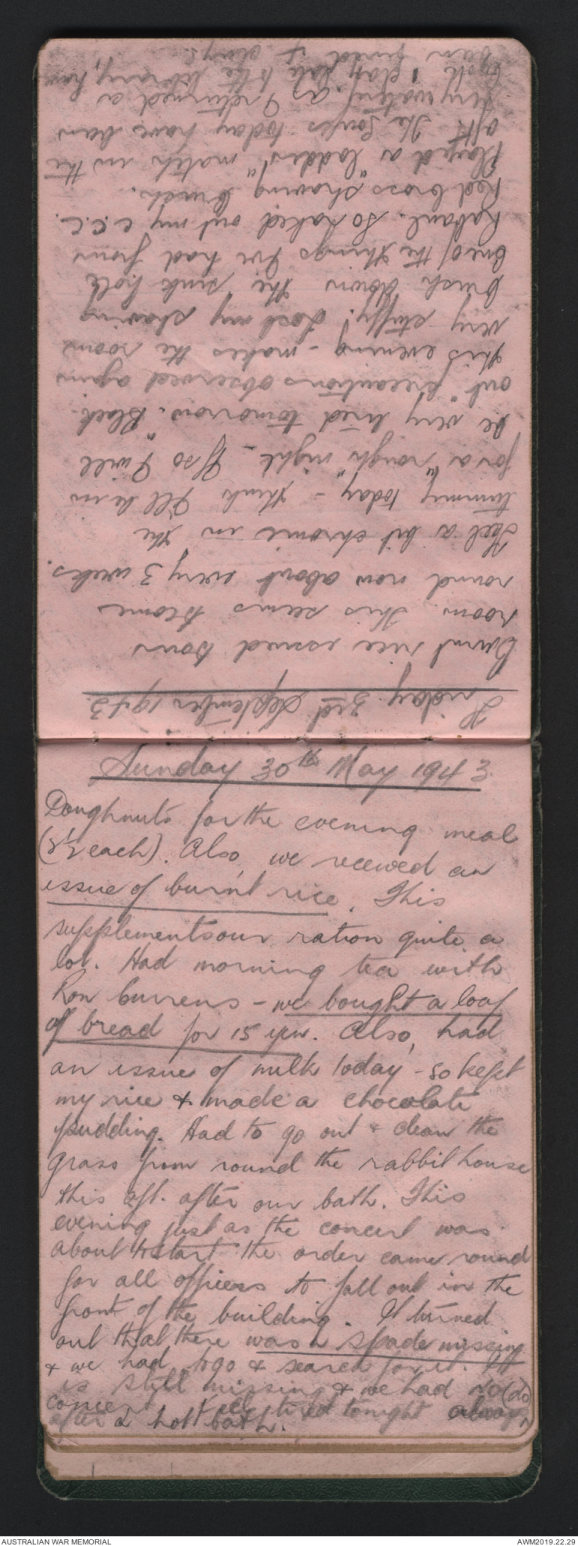 Friday 3rd September 1943
Burnt rice issued down
room. This seems to come
round now about every 3 weeks.
Feel a bit chronic in the
tummy today - think I'll be in
for a "rough" night - If so I will
be very tired tomorrow. "Black-
out" precautions observed again
this evening - makes the room
very stuffy. Lost my shaving
brush down the sink hole
One of the things I've had from
Rabaul. So raked out my c.c.c.
Red Cross shaving brush.
Played a "ladder" match in the
aft. The soups today have been
very watery. As I returned a
book 1 day late to the library, have
been fined 7 days.
Sunday 30th May 1943
Doughnuts for the evening meal
(2½ each). Also, we received an
issue of burnt rice. This
supplements our ration quite a
lot. Had morning tea with
Ron Currens - we bought a loaf
of bread for 15 yen. Also, had
an issue of milk today - so kept
my rice & made a chocolate
pudding. Had to go out & clean the
grass from round the rabbit house
this aft. after our bath. This
evening just as the concert was
about to start the order came round
for all officers to fall out in the
front of the building. It turned
out that there was a spade missing
& we had to go & search for it. It
is still missing & we had no
concert. tired tonight always
after a hot bath.
AUSTRALIAN WAR MEMORIAL
AWM2019.22.29